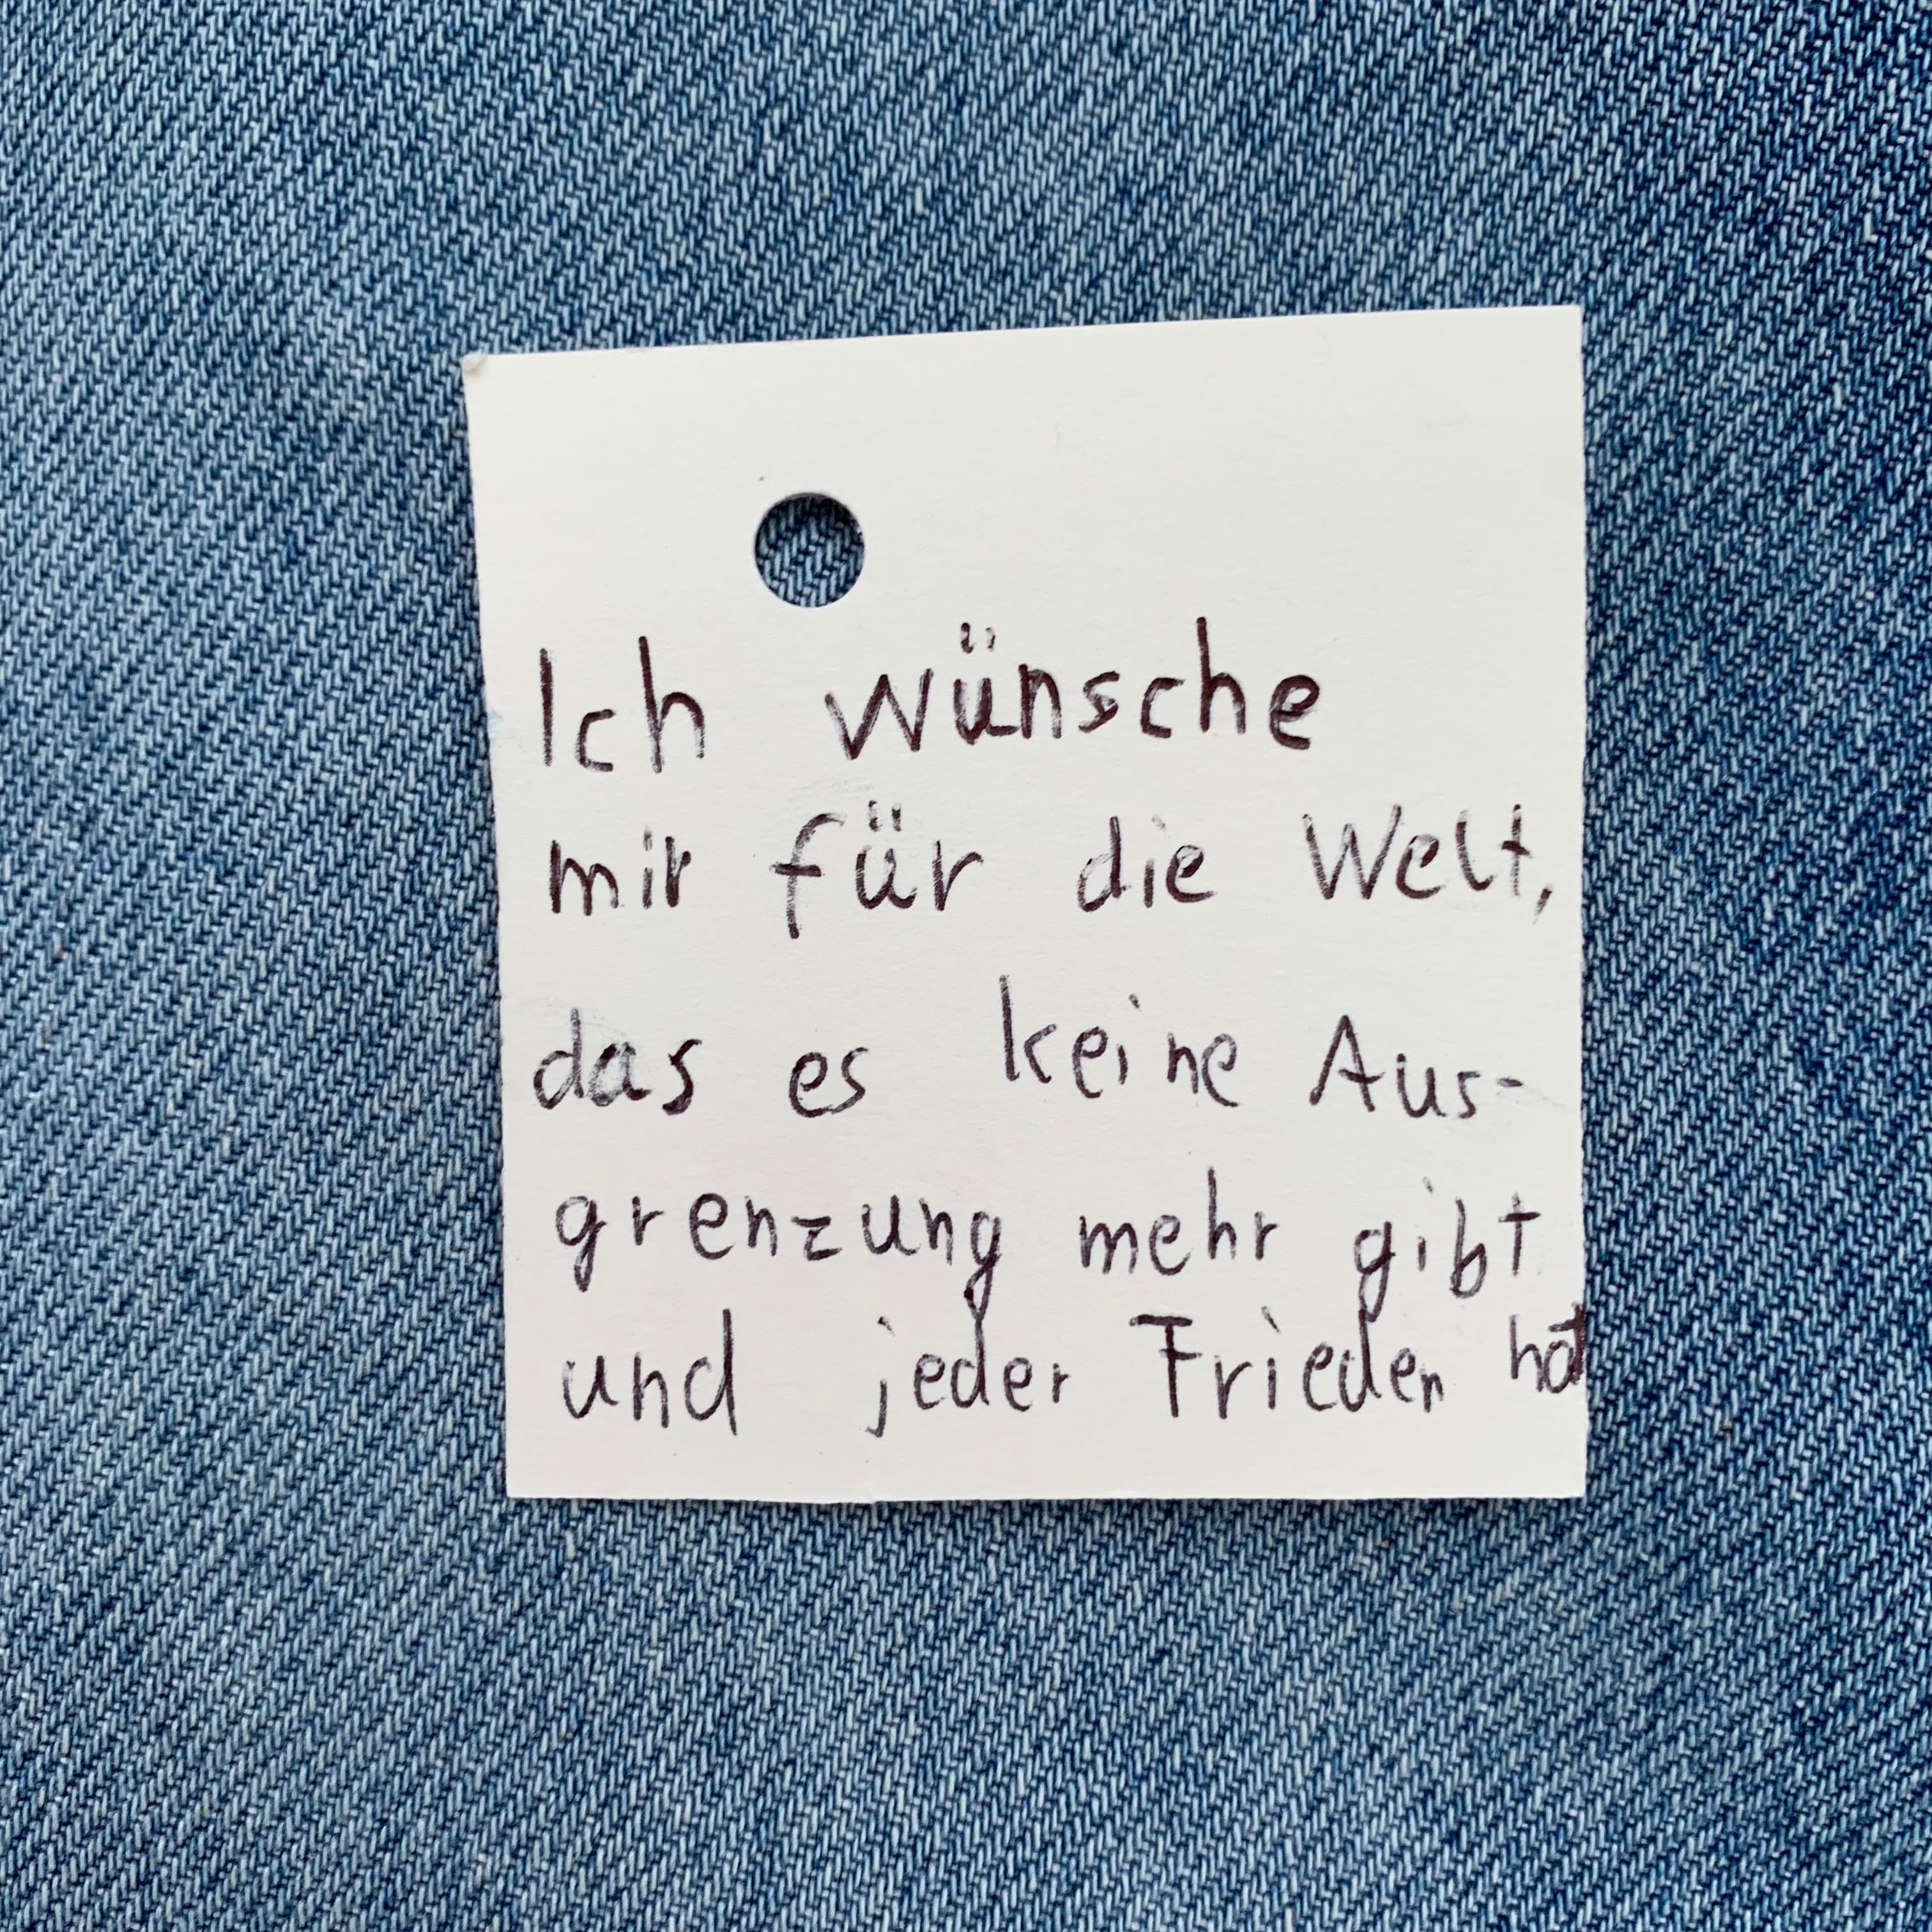 Ich wünsche
mir für die Welt,
das es keine Aus-
grenzung mehr gibt
und jeder Frieden hat